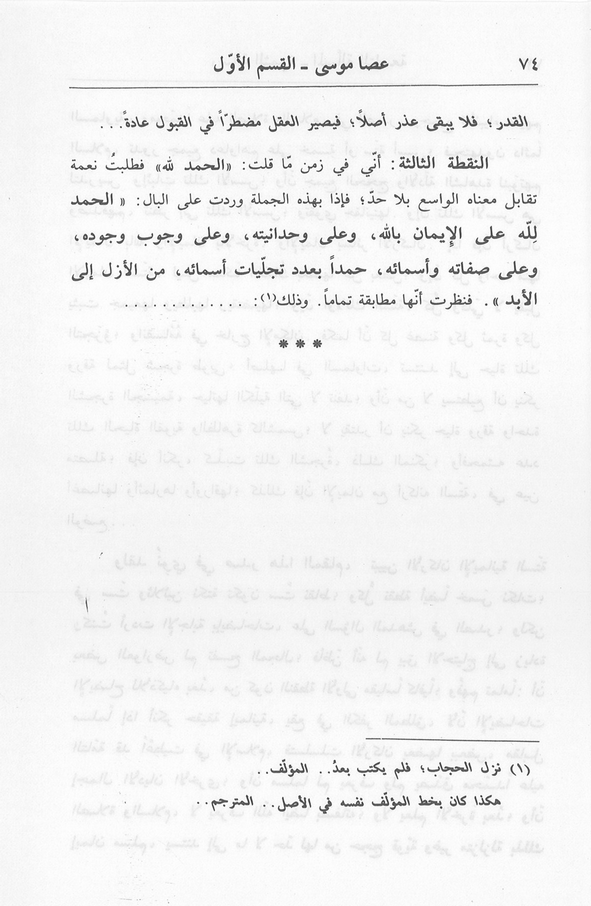 ٧٤ عصا موسى ـ القسم الأوّل
القدر؛ فلا يبقى عذر أصلاً؛ فيصير العقل مضطرّاً في القبول عادةً...
النقطة الثالثة: أنّي في زمن مّا قلت: «الحمد لله» فطلبتُ نعمة
تقابل معناه الواسع بلا حدّ؛ فإذا بهذه الجملة وردت على البال: «الحمد
لِلّه على الإيمان بالله، وعلى وحدانيته، وعلى وجوب وجوده،
وعلى صفاته وأسمائه، حمداً بعدد تجلّيات أسمائه، من الأزل إلى
الأبد». فنظرت أنّها مطابقة تماماً. وذلك(١): . . . . . . . . . . . . .
* * *
(١) نزل الحجاب؛ فلم يكتب بعدُ.. المؤلّف..
هكذا كان بخط المؤلّف نفسه في الأصل.. المترجم..